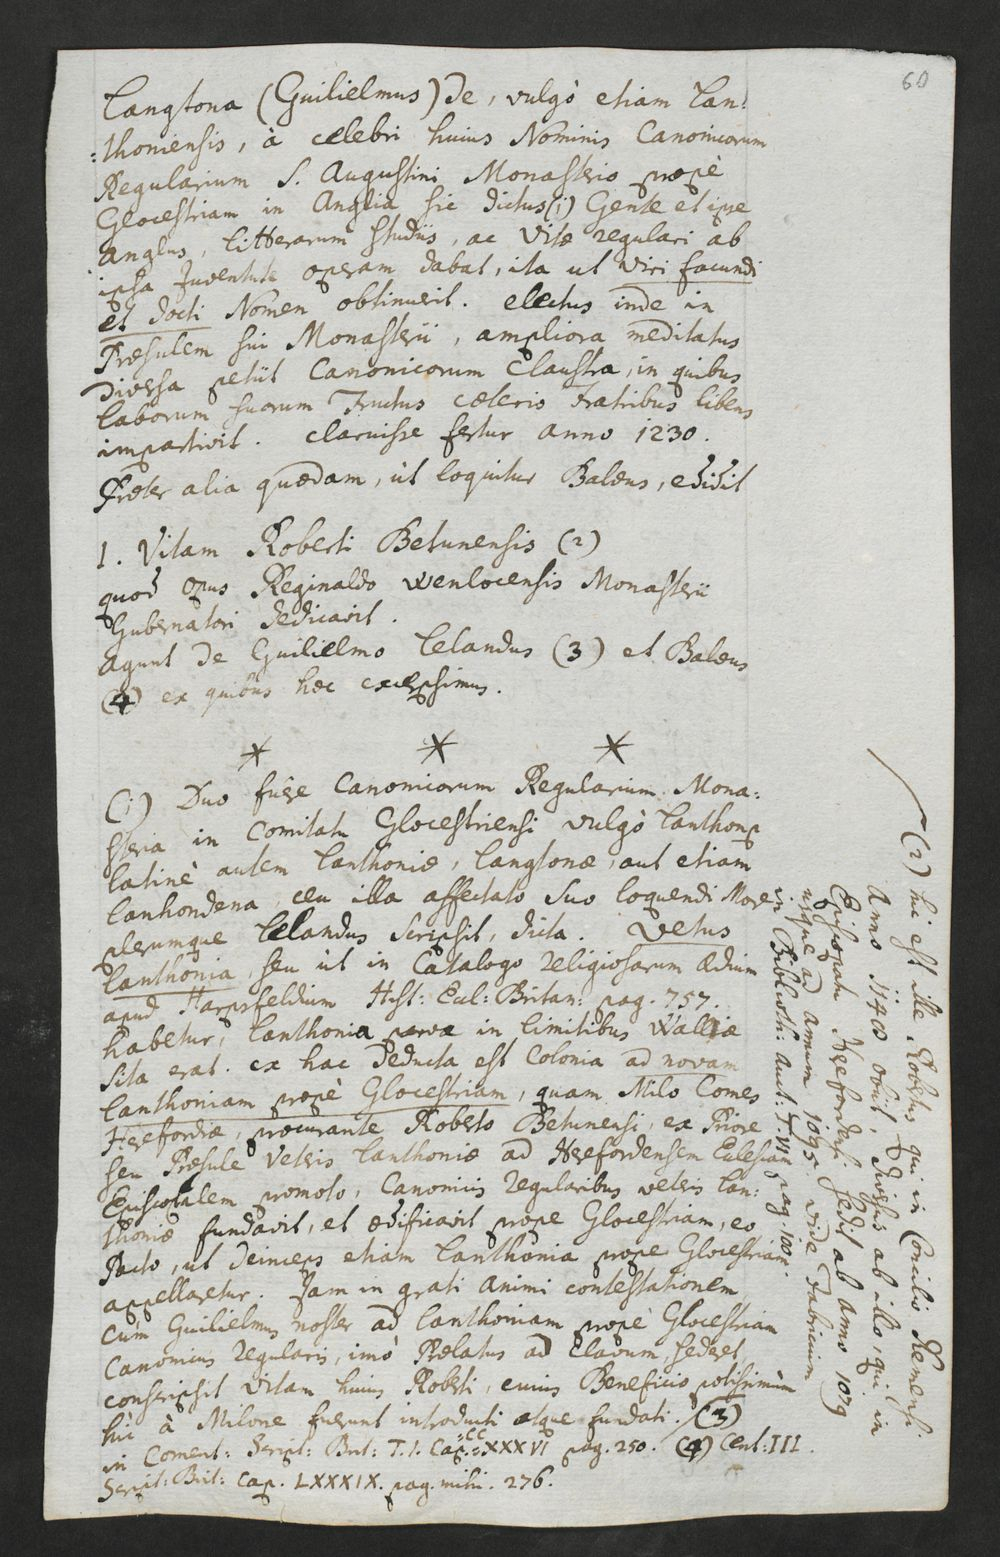 60
Langtona (Guilielmus) de, vulgò etiam Lan:
:thoniensis, à celebri huius Nominis Canonicorum
Regularium S. Augustini Monasterio propè
Glocestriam in Anglia sic dictus (1) Gente et ipse
Anglus, litterarum studiis, ac vitæ regulari ab
ipsa Juventute operam dabat, ita ut viri facundi
et docti Nomen obtinuerit. electus inde in
Præsulem sui Monasterii, ampliora meditatus
diversa petiit Canonicorum Claustra, in quibus
laborum suorum Fructus cæteris Fratribus libens
impartivit. claruisse fertur anno 1230.
Præter alia quædam, ut loquitur Balæus, edidit
1. Vitam Roberti Betunensis (2)
quod opus Reginaldo Wenlocensis Monasterii
Gubernatori dedicavit.
Agunt de Guilielmo Lelandus (3) et Balæus
(4) ex quibus hæc excerpsimus.
* * *
(1) Duo fuere Canonicorum Regularium Mona:
steria in Comitatu Glocestriensi vulgò Lanthony
latinè autem Lanthoniæ, Langtonæ, aut etiam
Lanhondena, ceu illa affectato suo loquendi More
plerumque Lelandus scripsit, dicta. Vetus
Lanthonia, seu ut in Catalogo religiosarum Ædium
apud Harpsfeldium Hist: Eccl: Britan: pag. 757.
habetur, Lanthonia parva in limitibus Walliæ
sita erat. ex hac deducta est Colonia ad novam
Lanthoniam propè Glocestriam, quam Milo Comes
Herefordiæ, procurante Roberto Betunensi, ex Priore
seu Præsule Veteris Lanthoniæ ad Herefordensem Eclesiam
Episcopalem promoto, Canonicis regularibus veteris Lan:
thoniæ fundavit, et ædificavit prope Glocestriam, eo
Pacto, ut deinceps etiam Lanthonia prope Glocestriam
appellaretur. Jam in grati animi contestationem
cùm Guilielmus noster ad Lanthoniam propè Glocestriam
Canonicus regularis, imò Prælatus ad Clavum sederet,
conscripsit vitam huius Roberti, cuius Beneficio potissimùm
hùc à Milone fuerunt introducti atque fundati. (3)
in Coment: Script: Brit: T. I. Cap. CCXXXVI pag. 250. (4) Cent: III.
Script: Brit: Cap. LXXXIX. pag. mihi. 276.
(2) hic est ille Robertus qui in Concilio Remensi
Anno 1148 obiit, diversus ab illo, qui in
Episcopatu Herefordensi sedit ab anno 1079
usque ad annum 1095. vide Fabricium
in Biblioth: Auct: T. VI pag. 100.